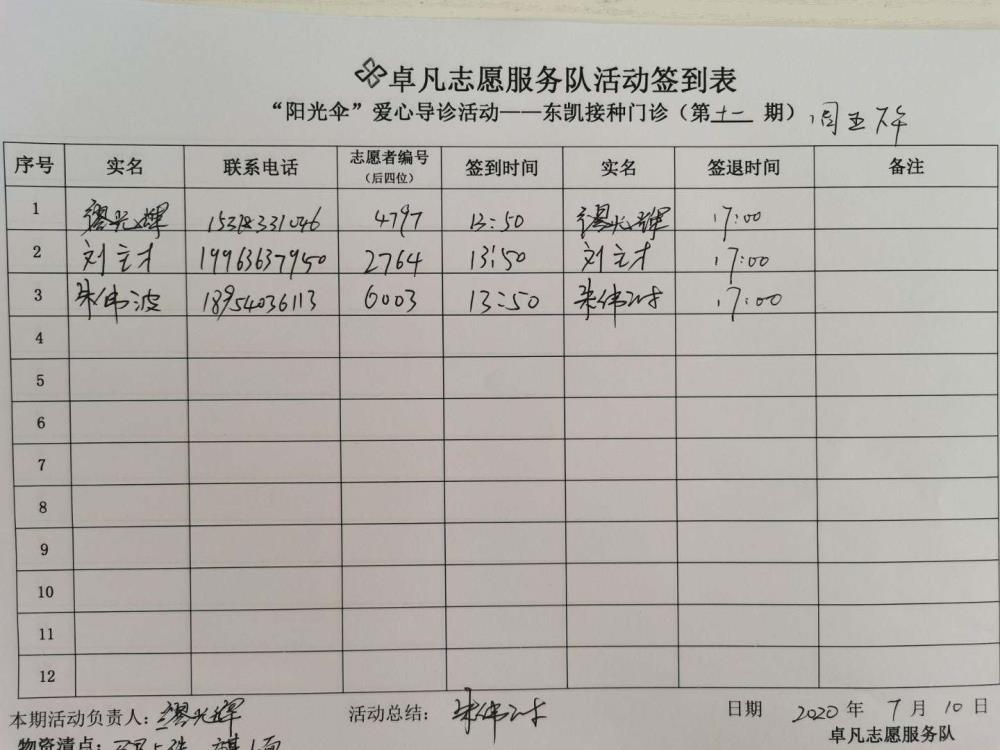 卓凡志愿服务队活动签到表
“阳光伞”爱心导诊活动——东凯接种门诊（第十一期）周五下午
序号 实名 联系电话 志愿者编号（后四位） 签到时间 实名 签退时间 备注
1 缪光辉 4797 13:50 缪光辉 17:00
2 刘立才 19963637950 2764 13:50 刘立才 17:00
3 朱伟波 18954036113 6003 13:50 朱伟波 17:00
4
5
6
7
8
9
10
11
12
本期活动负责人：缪光辉 活动总结：朱伟波 日期 2020 年 7 月 10 日
物资清点： 卓凡志愿服务队